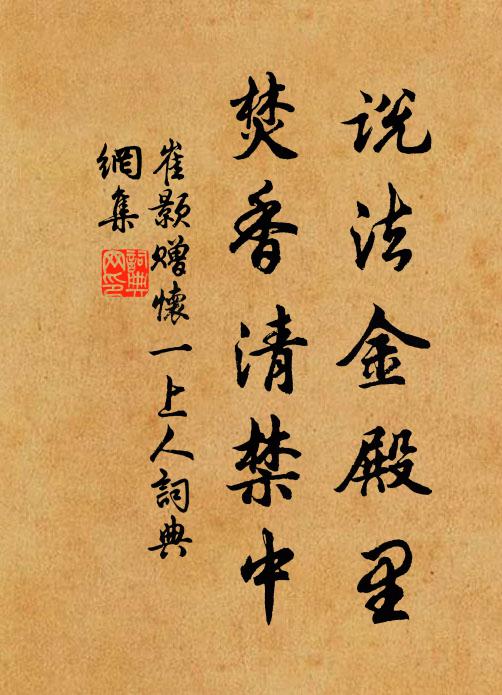 说法金殿里
焚香清禁中
崔颢赠怀一上人詞典
網集
詞典
网印